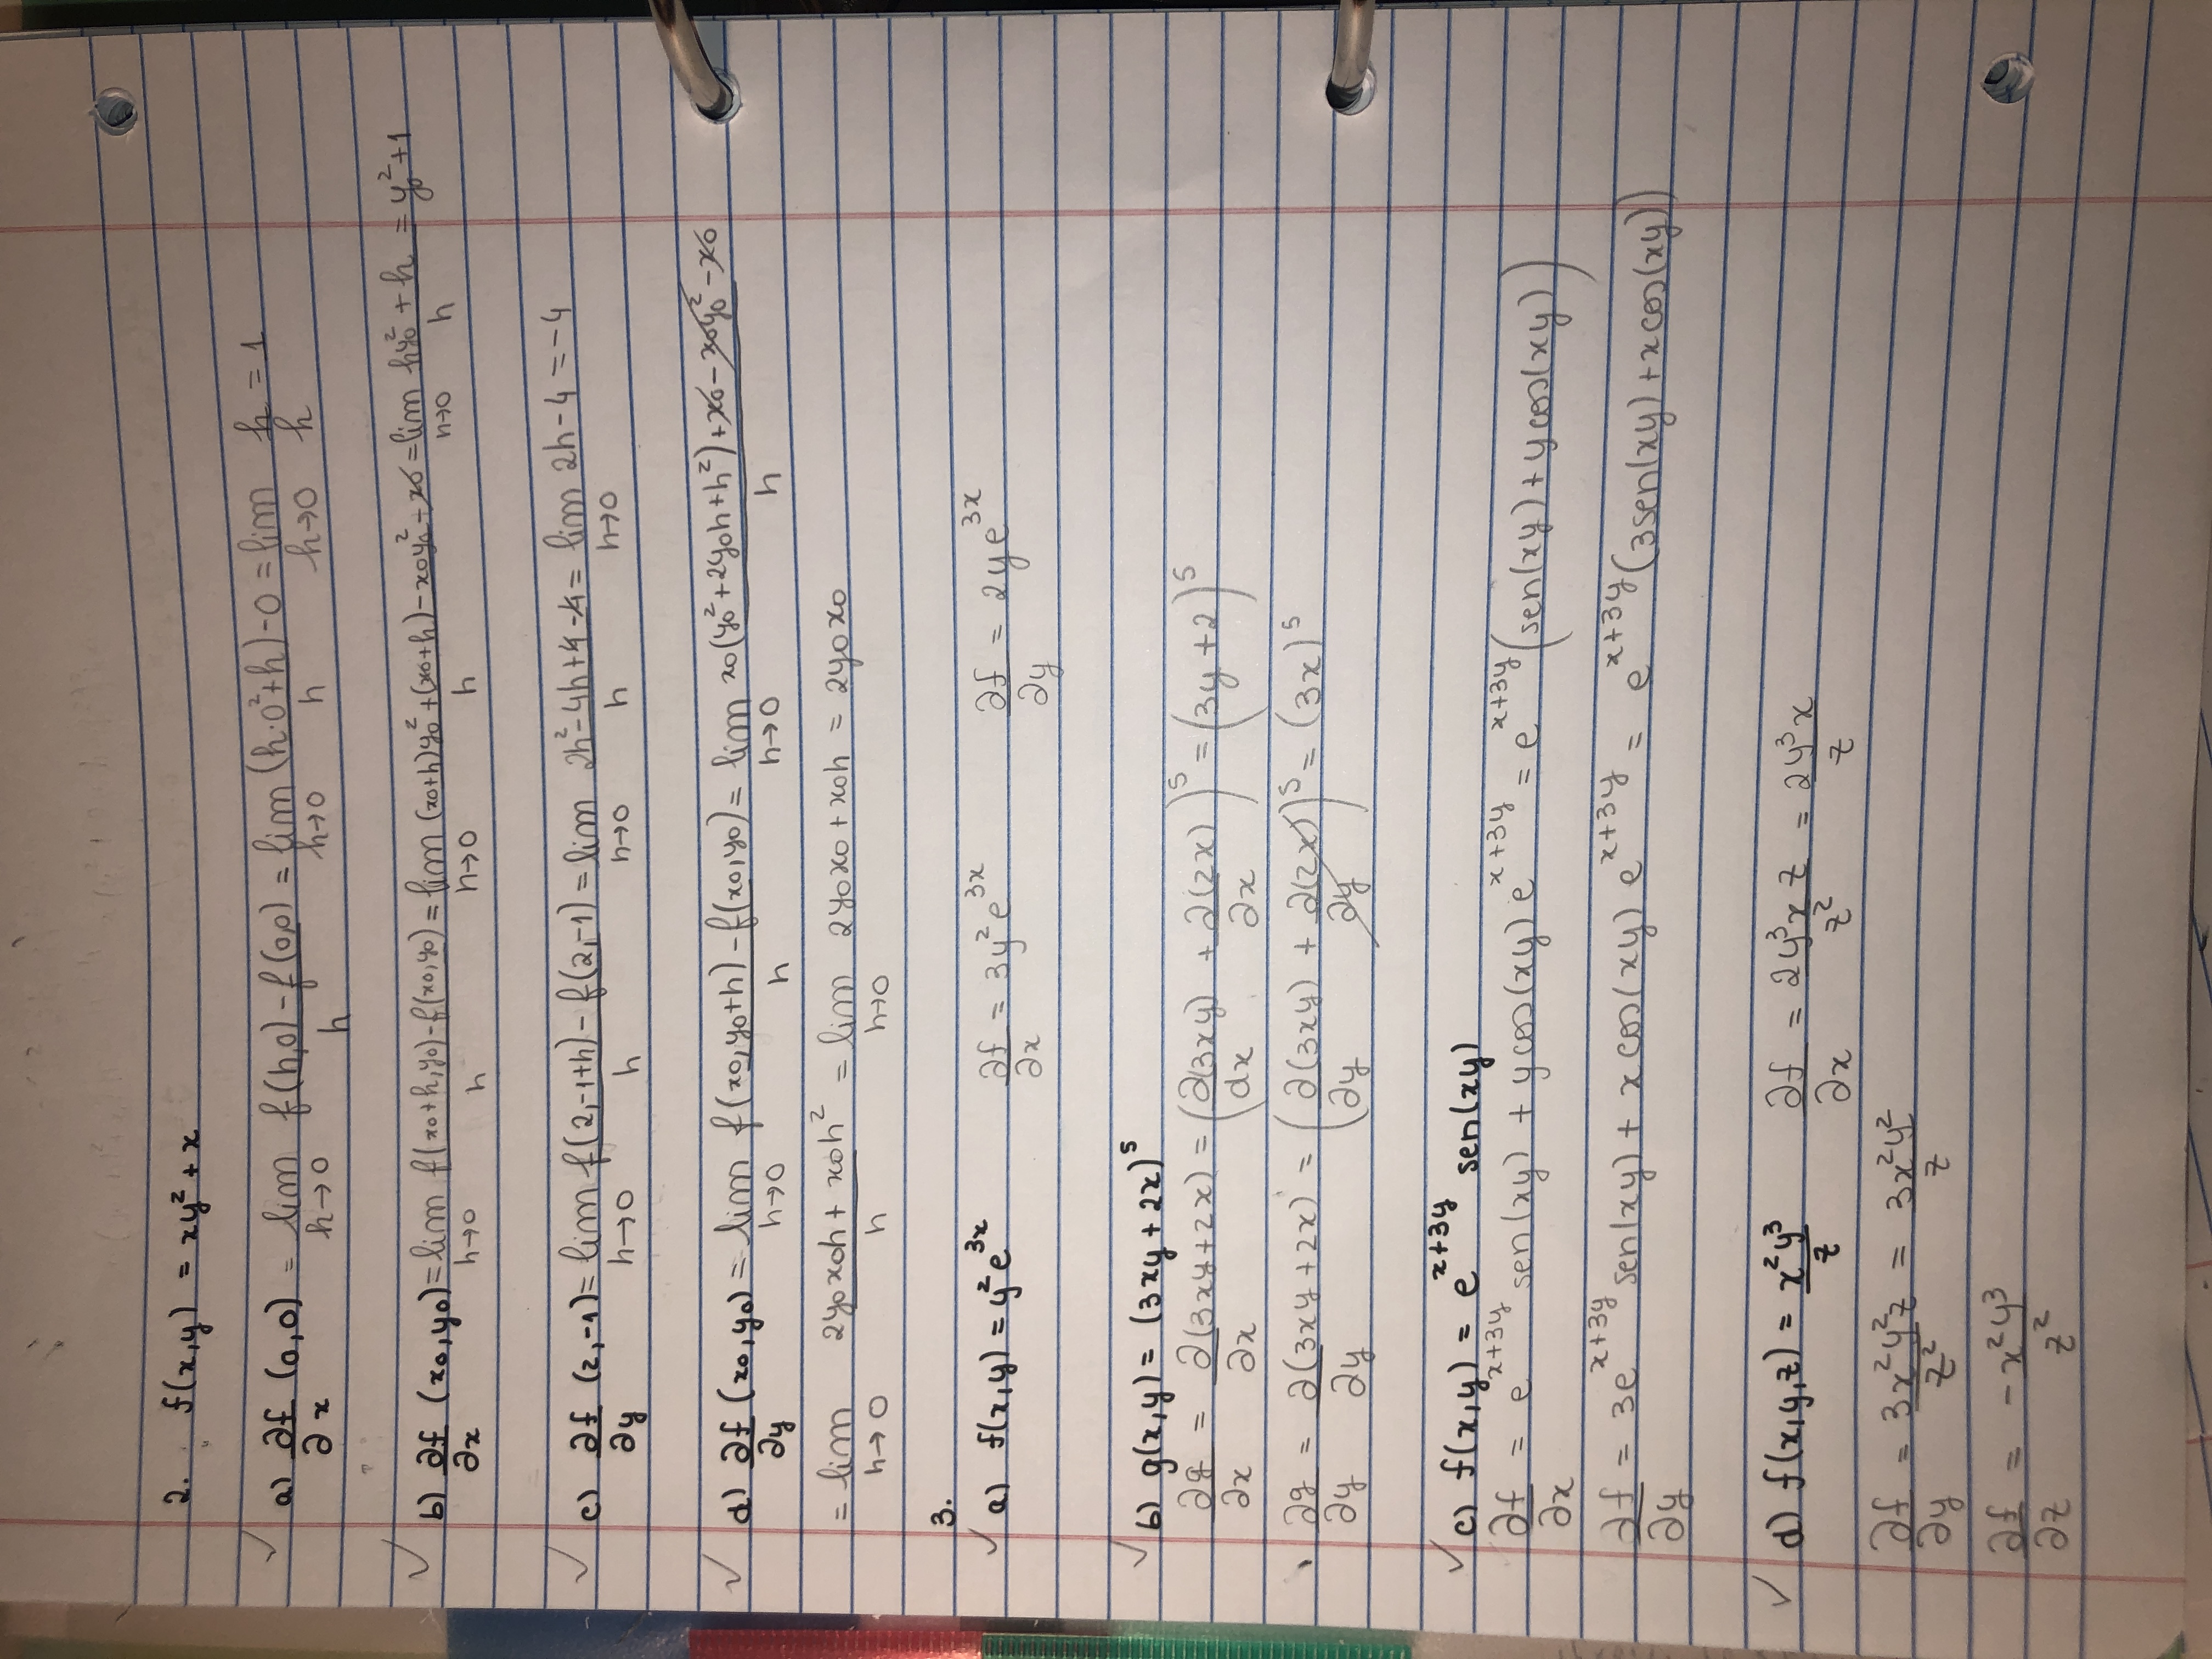 2. f(x,y) = xy² + x
✓ a) ∂f/∂x (0,0) = lim h→0 f(h,0) - f(0,0)/h = lim h→0 (h·0²+h)-0/h = lim h→0 h/h = 1
✓ b) ∂f/∂x (x0,y0) = lim h→0 f(x0+h,y0)-f(x0,y0)/h = lim h→0 (x0+h)y0²+(x0+h)-x0y0²-x0/h = lim h→0 hy0²+h/h = y0²+1
✓ c) ∂f/∂y (2,-1) = lim h→0 f(2,-1+h) - f(2,-1)/h = lim h→0 2h²-4h+4-4/h = lim h→0 2h-4 = -4
✓ d) ∂f/∂y (x0,y0) = lim h→0 f(x0,y0+h) - f(x0,y0)/h = lim h→0 x0(y0²+2y0h+h²)+x0-x0y0²-x0/h
= lim h→0 2y0x0h + x0h²/h = lim h→0 2y0x0 + x0h = 2y0x0
3.
✓ a) f(x,y) = y²e^3x ∂f/∂x = 3y²e^3x ∂f/∂y = 2ye^3x
✓ b) g(x,y) = (3xy + 2x)^5
∂g/∂x = ∂(3xy+2x)/∂x = (∂(3xy)/dx + ∂(2x)/∂x)^5 = (3y+2)^5
∂g/∂y = ∂(3xy+2x)/∂y = (∂(3xy)/∂y + ∂(2x)/∂y)^5 = (3x)^5
✓ c) f(x,y) = e^x+3y sen(xy)
∂f/∂x = e^x+3y sen(xy) + ycos(xy) e^x+3y = e^x+3y (sen(xy) + ycos(xy))
∂f/∂y = 3e^x+3y sen(xy) + x cos(xy) e^x+3y = e^x+3y (3sen(xy) + xcos(xy))
✓ d) f(x,y,z) = x²y³/z ∂f/∂x = 2y³x z/z² = 2y³x/z
∂f/∂y = 3x²y²z/z² = 3x²y²/z
∂f/∂z = -x²y³/z²